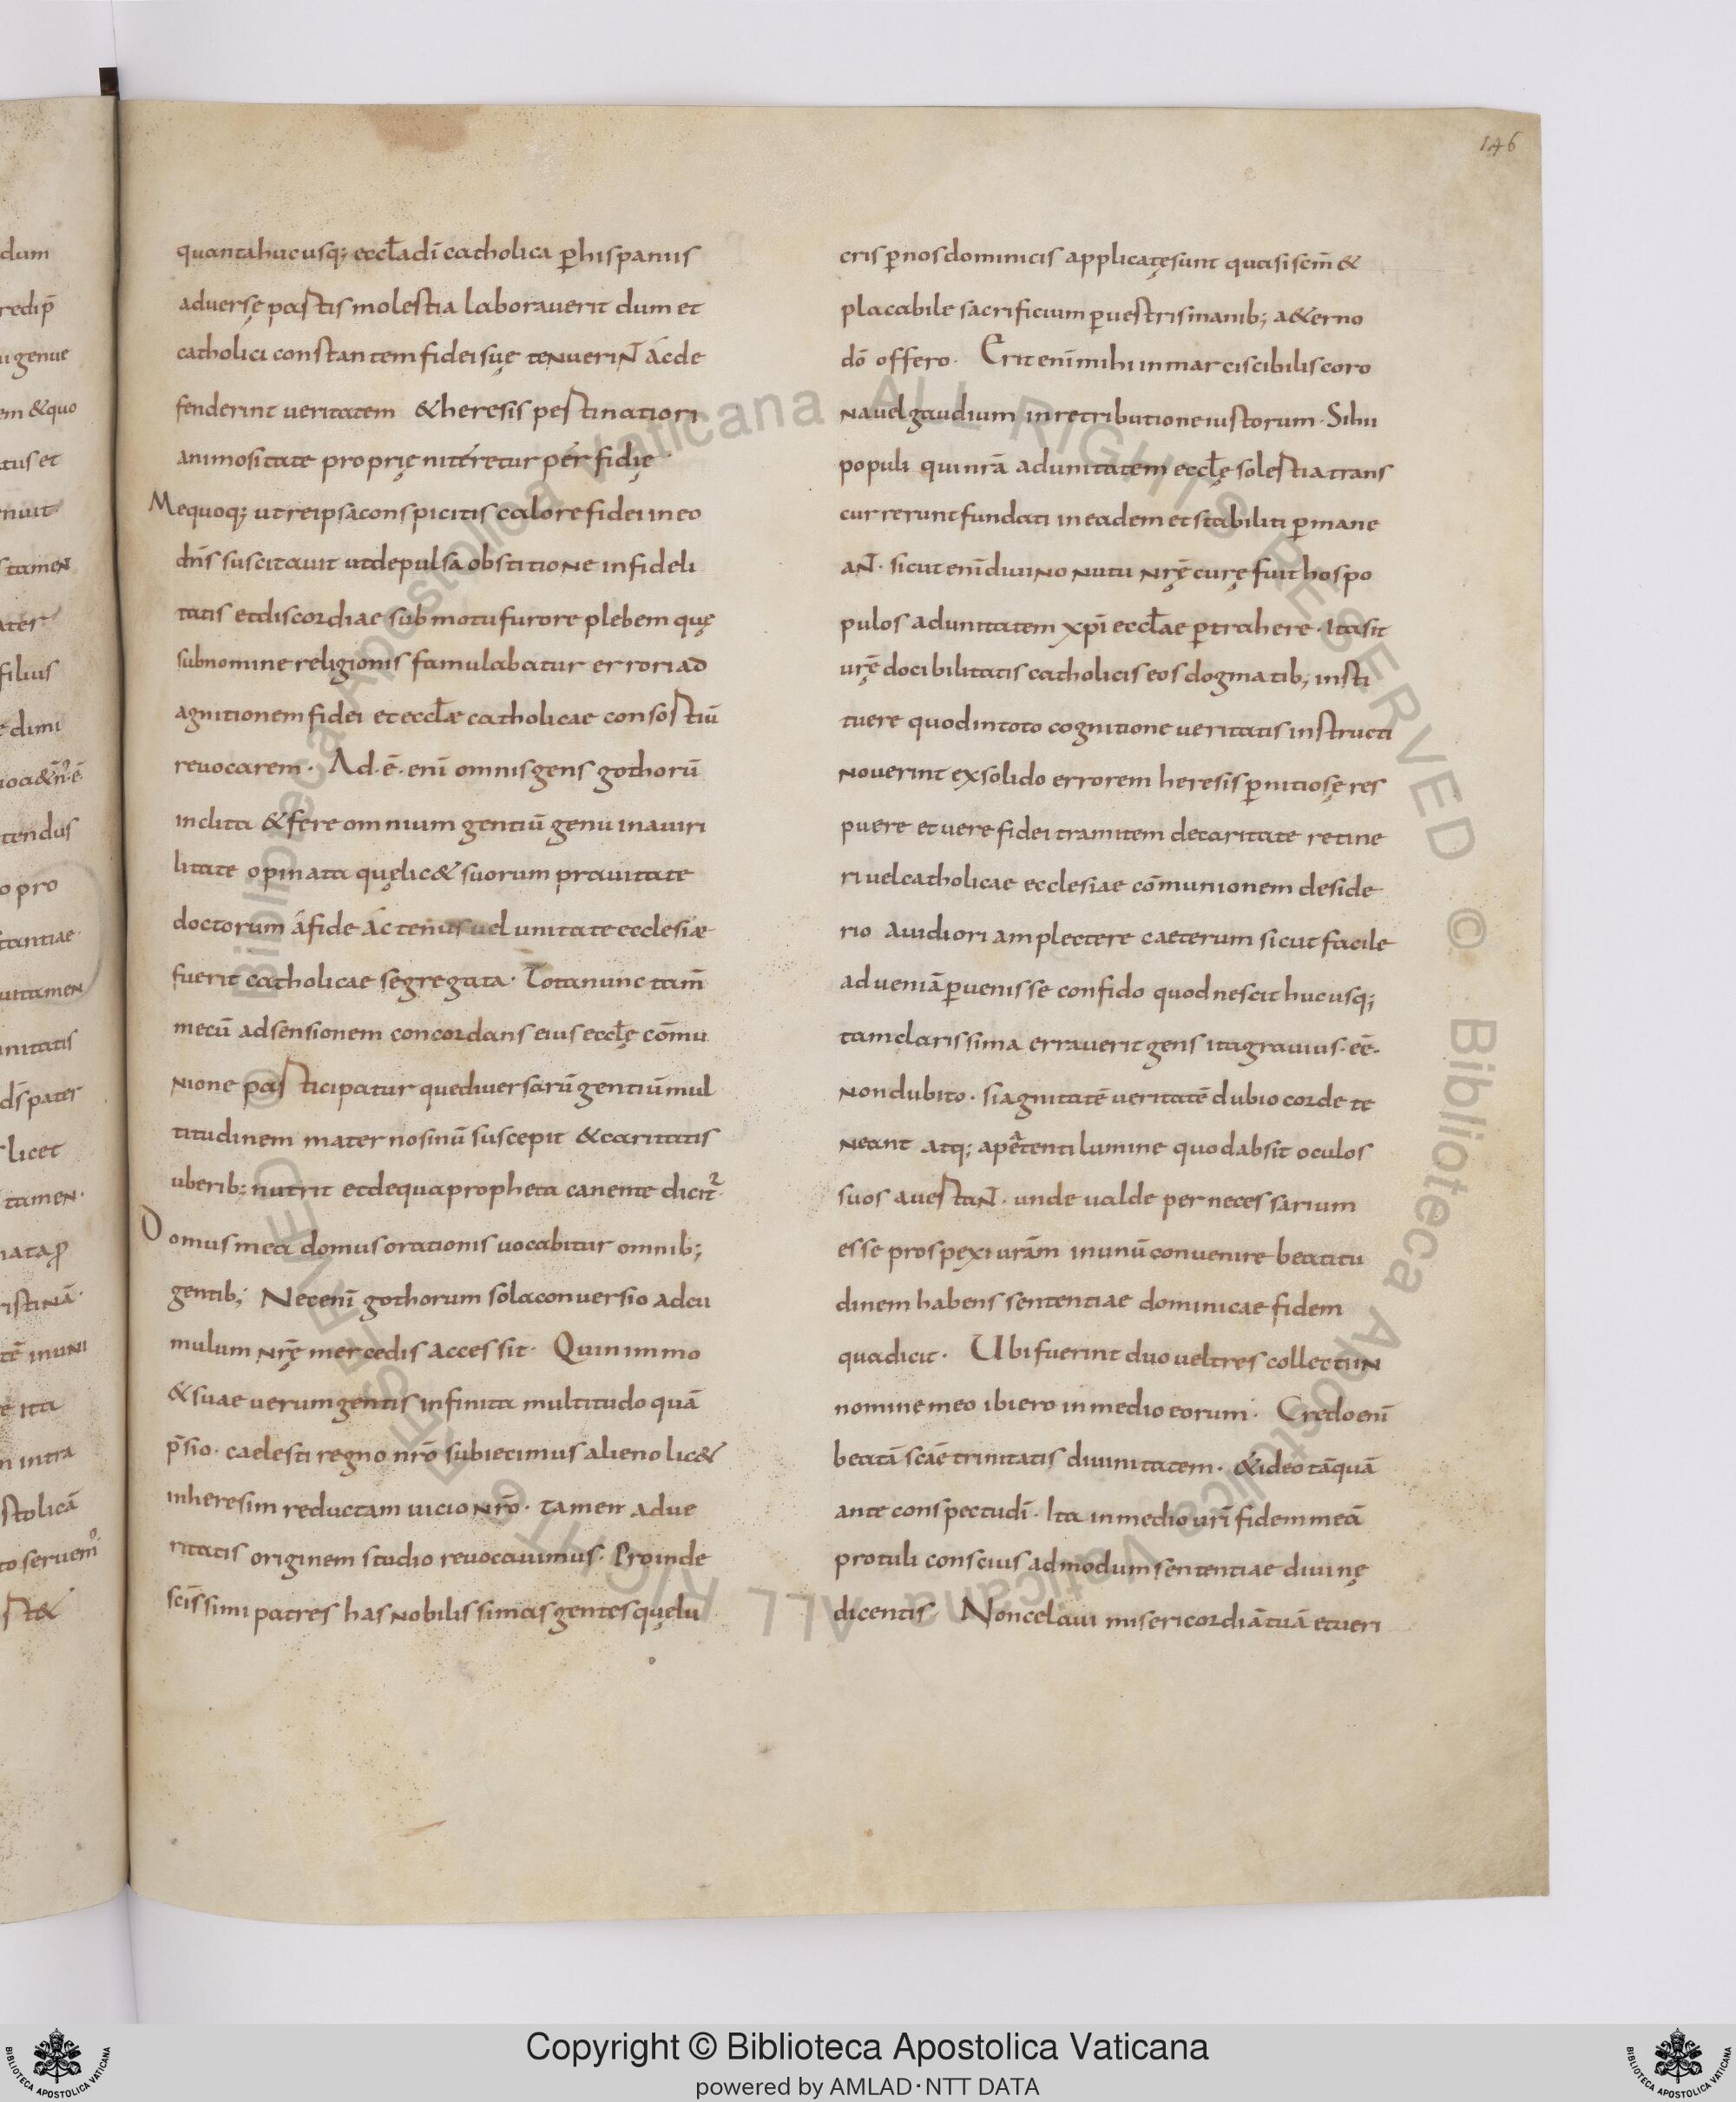 146
quantahucusq; eccl̄adī catholica p̄hispaniis
adversę pastis molestia laboraverit dum et
catholici constantem fidei suę tenuerint ac de
fenderint veritatem & heresis pestinatiori
animositate proprię niteretur perfidię
Mequoq; ut reipsa conspicitis calore fidei in eo
dn̄s suscitavit ut depulsa obstitione infideli
tatis et discordiae submotu furore plebem quę
sub nomine religionis famulabatur errori ad
agnitionem fidei et eccl̄æ catholicae consostiū
revocarem · Ad·ē·enī omnis gens gothorū
inclita & fere omnium gentiū genuina viri
litate opinata quęlic& suorum pravitate
doctorum afide actenus vel unitate ecclesiæ
fuerit catholicae segregata · Tota nunc tam̄
mecū adsensionem concordans eius eccl̄ę cōmu
nione pasticipatur que diversarū gentiū mul
titudinem maternosinū suscepit & caritatis
uberib; nutrit et de qua propheta canente dicit̄
Domus mea domus orationis vocabitur omnib;
gentib; Nec enī gothorum sola conversio adcu
mulum nr̄ę mercedis accessit · Quinimmo
& suae verum gentis infinita multitudo quā
p̄sio · caelesti regno nr̄o subiecimus alieno lic&
in heresim reductam vicio nr̄o · tamen adve
ritatis originem studio revocavimus · Proinde
sc̄issimi patres has nobilissimas gentes quęlu
cris p̄nos dominicis applicatę sunt quasi sc̄m &
placabile sacrificium p̄ vestris manib; a&erno
dō offero · Erit enī mihi inmarciscibilis coro
na vel gaudium in retributione iustorum · Si hii
populi qui nr̄ā ad unitatem eccl̄ę solestia trans
currerunt fundati in eadem et stabiliti p̄mane
ant · sicut enī divino nutu nr̄ę curę fuit hos po
pulos ad unitatem xp̄i eccl̄ae p̄trahere · Ita sit
ur̄ę docibilitatis catholicis eos dogmatib; insti
tuere quo dintoto cognitione veritatis instructi
noverint ex solido errorem heresis p̄nitiosę res
puere et vere fidei tramitem de caritate retine
ri vel catholicae ecclesiae cōmunionem deside
rio avidiori amplectere caeterum sicut facile
ad veniā p̄venisse confido quod nescit hucusq;
tam clarissima erraverit gens ita gravius·eē·
non dubito · si agnitatē veritatē dubio corde te
neant atq; apetenti lumine quod absit oculos
suos avestant · unde valde pernecessarium
esse prospexi ur̄ām in unū convenire beatitu
dinem habens sententiae dominicae fidem
qua dicit · Ubi fuerint duo vel tres collecti in
nomine meo ibi ero in medio eorum · Credo enī
beatā sc̄ae trinitatis divinitatem · & ideo tāquā
ante conspectu dī · Ita in medio ur̄i fidem meā
protuli conscius admodum sententiae divinę
dicentis Non celavi misericordiā tuā et veri
Copyright © Biblioteca Apostolica Vaticana
powered by AMLAD·NTT DATA